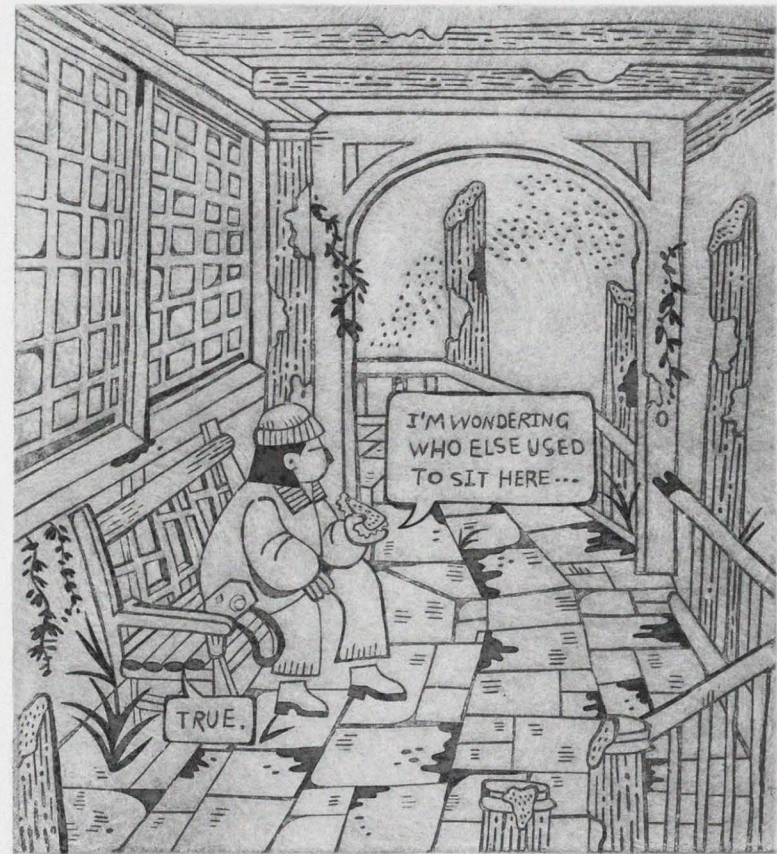 I'M WONDERING
WHO ELSE USED
TO SIT HERE...
TRUE.